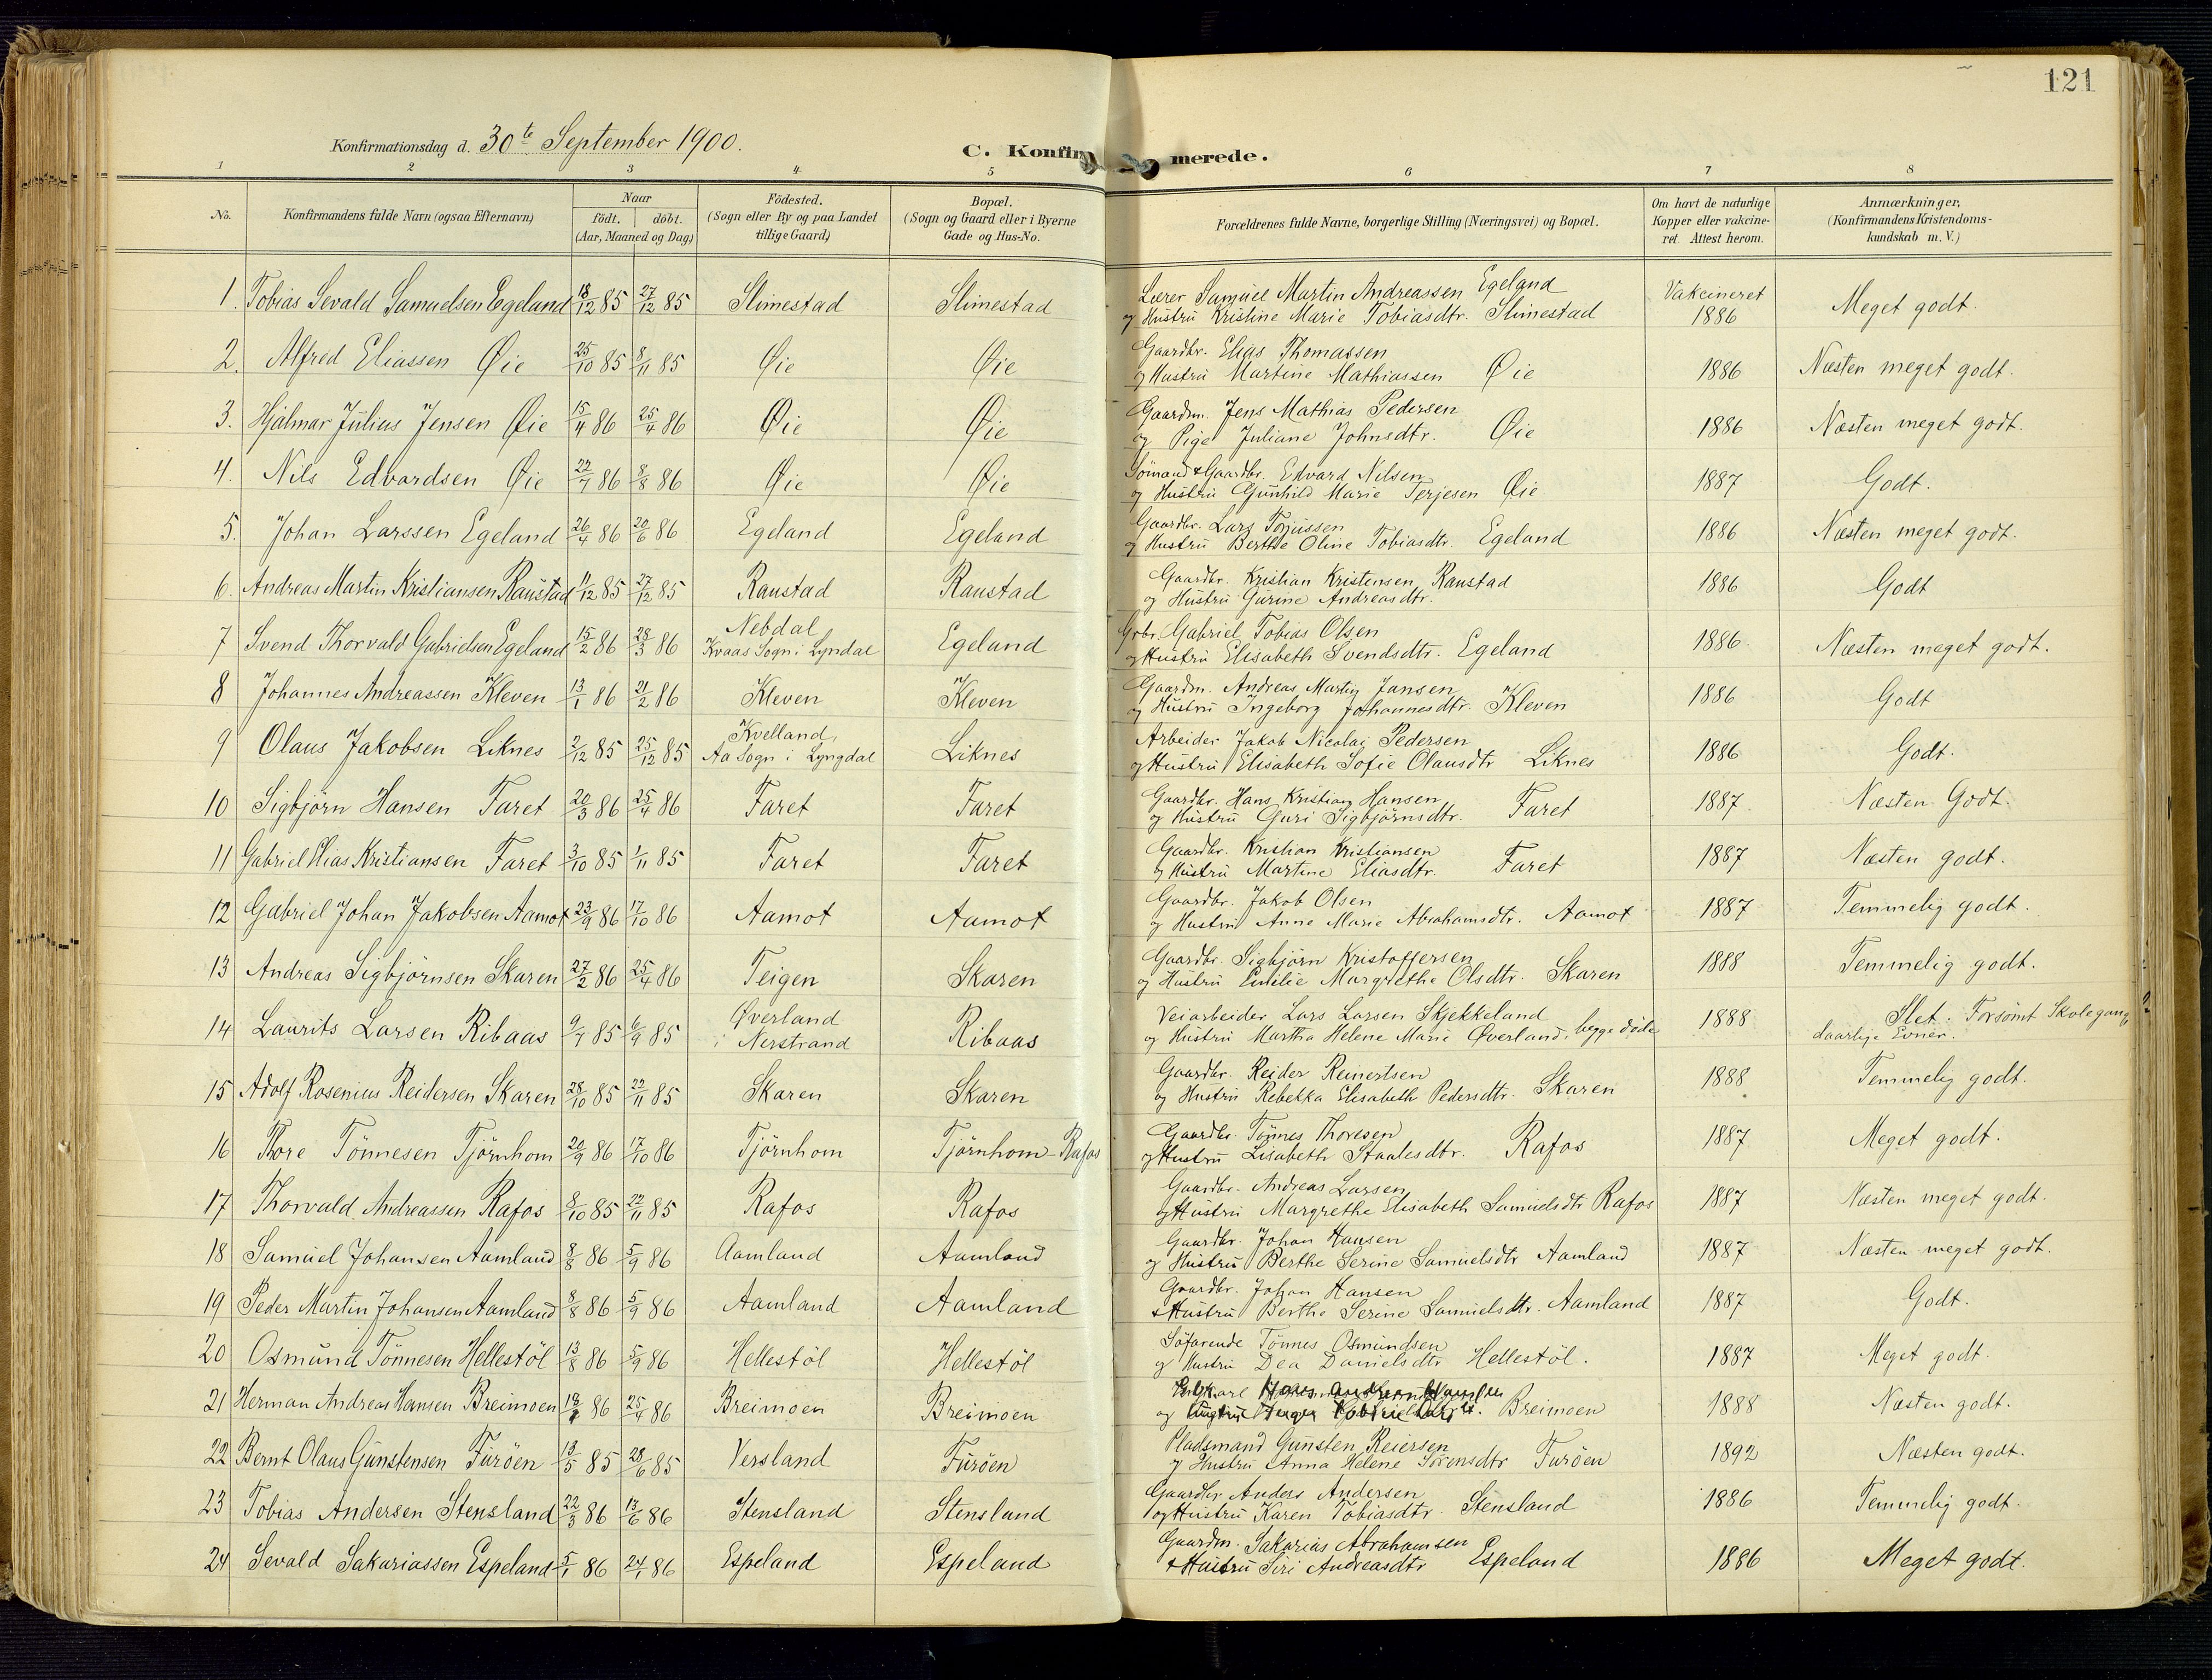 121
Konfirmationsdag d. 30te September 1900.
C. Konfirmerede.
1 2 3 4 5 6 7 8
No. Konfirmandens fulde Navn (ogsaa Efternavn) Naar födt. döbt. (Aar, Maaned og Dag) Födested. (Sogn eller By og paa Landet tillige Gaard) Bopæl. (Sogn og Gaard eller i Byerne Gade og Hus-No. Forældrenes fulde Navne, borgerlige Stilling (Næringsvei) og Bopæl. Om havt de naturlige Kopper eller vakcineret. Attest herom. Anmærkninger, (Konfirmandens Kristendomskundskab m.V.)
1. Tobias Sevald Samuelsen Egeland 18/12 85 27/12 85 Slimestad Slimestad Lærer Samuel Martin Andreassen Egeland og Hustru Kristine Marie Tobiasdtr. Slimestad Vakcineret 1886 Meget godt.
2. Alfred Eliassen Øie 25/10 85 8/11 85 Øie Øie Gaardbr. Elias Thomassen og Hustru Martine Mathiassen Øie 1886 Næsten meget godt.
3. Hjalmar Julius Jensen Øie 15/4 86 25/4 86 Øie Øie Gaardm. Jens Mathias Pedersen og Pige Juliane Johnsdtr. Øie 1886 Næsten meget godt.
4. Nils Edvardsen Øie 22/7 86 8/8 86 Øie Øie Sömand & Gaardbr. Edvard Nilsen og Hustru Gunhild Marie Terjesen Øie 1887 Godt.
5. Johan Larssen Egeland 26/4 86 20/6 86 Egeland Egeland Gaardbr. Lars Tørjussen og Hustru Berthe Oline Tobiasdtr. Egeland 1886 Næsten meget godt.
6. Andreas Martin Kristiansen Raustad 11/12 85 27/12 85 Raustad Raustad Gaardbr. Kristian Kristensen Raustad og Hustru Gurine Andreasdtr. 1886 Godt
7 Svend Thorvald Gabrielsen Egeland 15/2 86 28/3 86 Nebdal Kvaas Sogn i Lyndal Egeland Grbr. Gabriel Tobias Olsen og Hustru Elisabeth Svendsdtr. Egeland 1886. Næsten meget godt.
8 Johannes Andreassen Kleven 13/1 86 21/2 86 Kleven Kleven Gaardm. Andreas Martin Jansen og Hustru Ingeborg Johannesdtr. Kleven 1886 Godt
9 Olaus Jakobsen Liknes 2/12 85 25/12 85 Kvelland, Aa Sogn i Lyngdal Liknes Arbeider Jakob Nicolai Pedersen og Hustru Elisabeth Sofie Olausdtr Liknes 1886 Godt.
10 Sigbjörn Hansen Faret 20/3 86 25/4 86 Faret Faret Gaardbr. Hans Kristian Hansen og Hustru Guri Sigbjörnsdtr. Faret 1887 Næsten Godt.
11 Gabriel Elias Kristiansen Faret 3/10 85 1/11 85 Faret Faret Gaardbr. Kristian Kristiansen og Hustru Martine Eliasdtr. Faret 1887 Næsten godt.
12 Gabriel Johan Jakobsen Aamot 23/9 86 17/10 86 Aamot Aamot Gaardbr. Jakob Olsen og Hustru Anne Marie Abrahamsdtr. Aamot 1887 Temmelig godt.
13 Andreas Sigbjörnsen Skaren 27/2 86 25/4 86 Teigen Skaren Gaardbr. Sigbjörn Kristoffersen og Hustru Emilie Margrethe Olsdtr. Skaren 1888 Temmelig godt.
14 Laurits Larsen Ribaas 9/7 85 6/9 85 Øverland i Nerstrand Ribaas Veiarbeider Lars Larsen Skjekkeland og Hustru Martha Helene Marie Øverland, begge döde 1888 Slet. Forsømt Skolegang daarlige Evner.
15 Adolf Rosenius Reidersen Skaren 28/10 85 22/11 85 Skaren Skaren Gaardbr. Reider Reinertsen og Hustru Rebekka Elisabeth Pedersdtr. Skaren 1888 Temmelig godt.
16 Thore Tönnesen Tjörnhom 20/9 86 17/10 86 Tjörnhom Tjörnhom-Rafos Gaardbr. Tönnes Thoresen og Hustru Lisabeth Staalesdtr. Rafos 1887 Meget godt.
17 Thorvald Andreassen Rafos 8/10 85 22/11 85 Rafos Rafos Gaardbr. Andreas Larsen og Hustru Margrethe Elisabeth Samuelsdtr Rafos 1887 Næsten meget godt.
18 Samuel Johansen Aamland 8/8 86 5/9 86 Aamland Aamland Gaardbr. Johan Hansen og Hustru Berthe Serine Samuelsdtr Aamland 1887 Næsten meget godt.
19 Peder Martin Johansen Aamland 8/8 86 5/9 86 Aamland Aamland Gaardbr. Johan Hansen & Hustru Berthe Serine Samuelsdtr. Aamland 1887 Godt.
20 Osmund Tönnesen Hellestöl 13/8 86 5/9 86 Hellestöl Hellestöl Söfarende Tönnes Osmundsen og Hustru Dea Danielsdtr Hellestöl. 1887 Meget godt.
21 Herman Andreas Hansen Breimoen 86 25/4 86 Breimoen Breimoen Hans Andreas og Breimoen 1888 Næsten godt.
22 Bernt Olaus Gunstensen Furöen 13/5 85 28/6 85 Versland Furöen Pladsmand Gunsten Reiersen og Hustru Anna Helene Sörensdtr Furöen 1892 Næsten godt.
23 Tobias Andersen Stensland 22/3 86 13/6 86 Stensland Stensland Gaardbr Anders Andersen og Hustru Karen Tobiasdtr. Stensland 1886 Temmelig godt.
24 Sevald Sakariassen Espeland 5/1 86 24/1 86 Espeland Espeland Gaardm. Sakarias Abrahamsen & Hustru Siri Andreasdtr Espeland 1886 Meget godt.